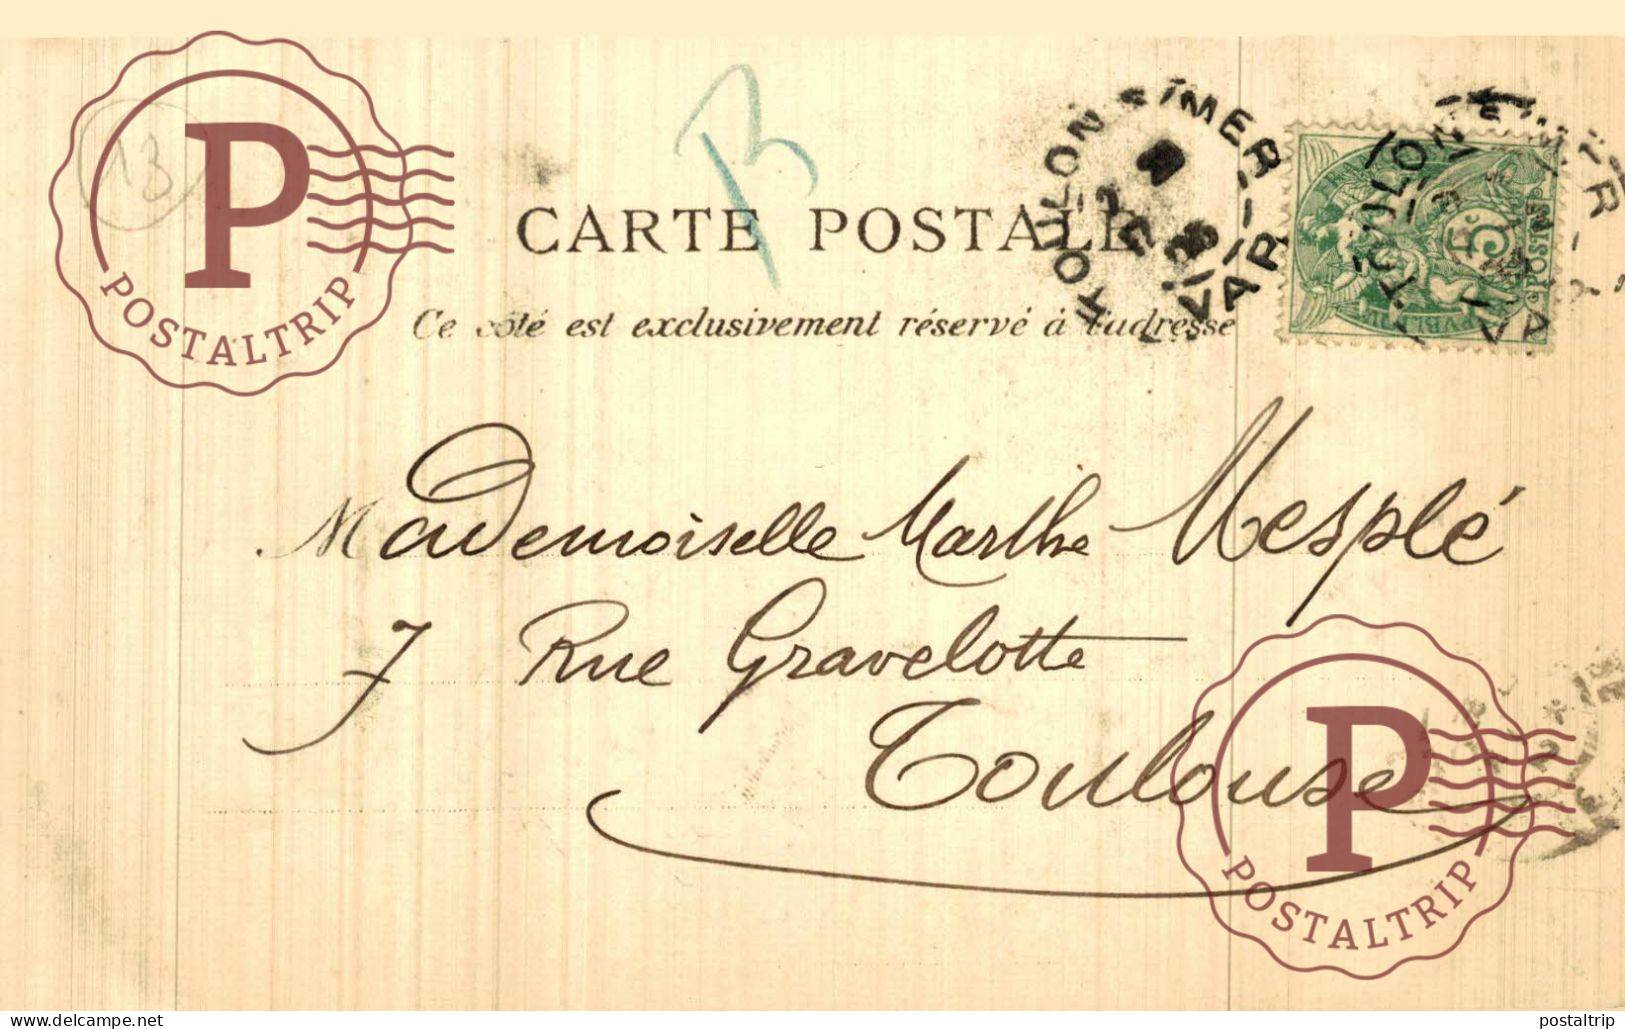 13
B
P
POSTALTRIP
CARTE POSTALE
TOULON S/MER
VAR
TOULON S/MER
VAR
5c
Ce côté est exclusivement réservé à l'adresse
Mademoiselle Marthe Mesplé
7 Rue Gravelotte
Toulouse
P
POSTALTRIP
delcampe.net
postaltrip